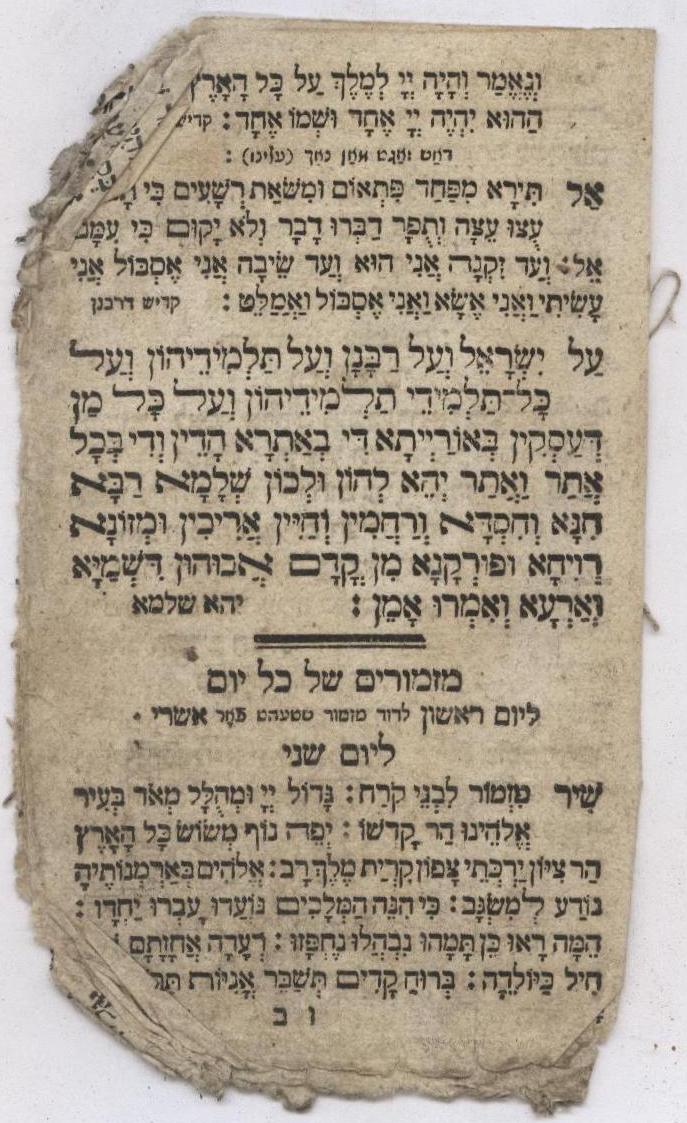 וְנֶאֱמַר וְהָיָה יְיָ לְמֶלֶךְ עַל כָּל הָאָרֶץ
הַהוּא יִהְיֶה יְיָ אֶחָד וּשְׁמוֹ אֶחָד: קדיש
דאס זאגט מאן נאך (עלינו) :
אַל תִּירָא מִפַּחַד פִּתְאוֹם וּמִשֹּׁאַת רְשָׁעִים כִּי
עֻצוּ עֵצָה וְתֻפָר דַּבְּרוּ דָבָר וְלֹא יָקוּם כִּי עִמָּנוּ
אֵל: וְעַד זִקְנָה אֲנִי הוּא וְעַד שֵׂיבָה אֲנִי אֶסְבּוֹל אֲנִי
עָשִׂיתִי וַאֲנִי אֶשָּׂא וַאֲנִי אֶסְבּוֹל וַאֲמַלֵּט: קדיש דרבנן
עַל יִשְׂרָאֵל וְעַל רַבָּנָן וְעַל תַּלְמִידֵיהוֹן וְעַל
כָּל־תַּלְמִידֵי תַלְמִידֵיהוֹן וְעַל כָּל מַן
דְּעַסְקִין בְּאוֹרַיְיתָא דִּי בְאַתְרָא הָדֵין וְדִי בְּכָל
אֲתַר וַאֲתַר יְהֵא לְהוֹן וּלְכוֹן שְׁלָמָא רַבָּא
חִנָּא וְחִסְדָּא וְרַחֲמִין וְחַיִּין אֲרִיכִין וּמְזוֹנָא
רְוִיחָא וּפוּרְקָנָא מִן קֳדָם אֲבוּהוֹן דִּשְׁמַיָּא
וְאַרְעָא וְאִמְרוּ אָמֵן: יהא שלמא
מזמורים של כל יום
ליום ראשון לדוד מזמור שטעהט פאר אשרי •
ליום שני
שִׁיר מִזְמוֹר לִבְנֵי קֹרַח: גָּדוֹל יְיָ וּמְהֻלָּל מְאֹד בְּעִיר
אֱלֹהֵינוּ הַר קָדְשׁוֹ: יְפֵה נוֹף מְשׂוֹשׂ כָּל הָאָרֶץ
הַר צִיּוֹן יַרְכְּתֵי צָפוֹן קִרְיַת מֶלֶךְ רָב: אֱלֹהִים בְּאַרְמְנוֹתֶיהָ
נוֹדַע לְמִשְׂגָּב: כִּי הִנֵּה הַמְּלָכִים נוֹעֲדוּ עָבְרוּ יַחְדָּו:
הֵמָּה רָאוּ כֵּן תָּמָהוּ נִבְהֲלוּ נֶחְפָּזוּ: רְעָדָה אֲחָזָתַם
חִיל כַּיּוֹלֵדָה: בְּרוּחַ קָדִים תְּשַׁבֵּר אֳנִיּוֹת
ו ב